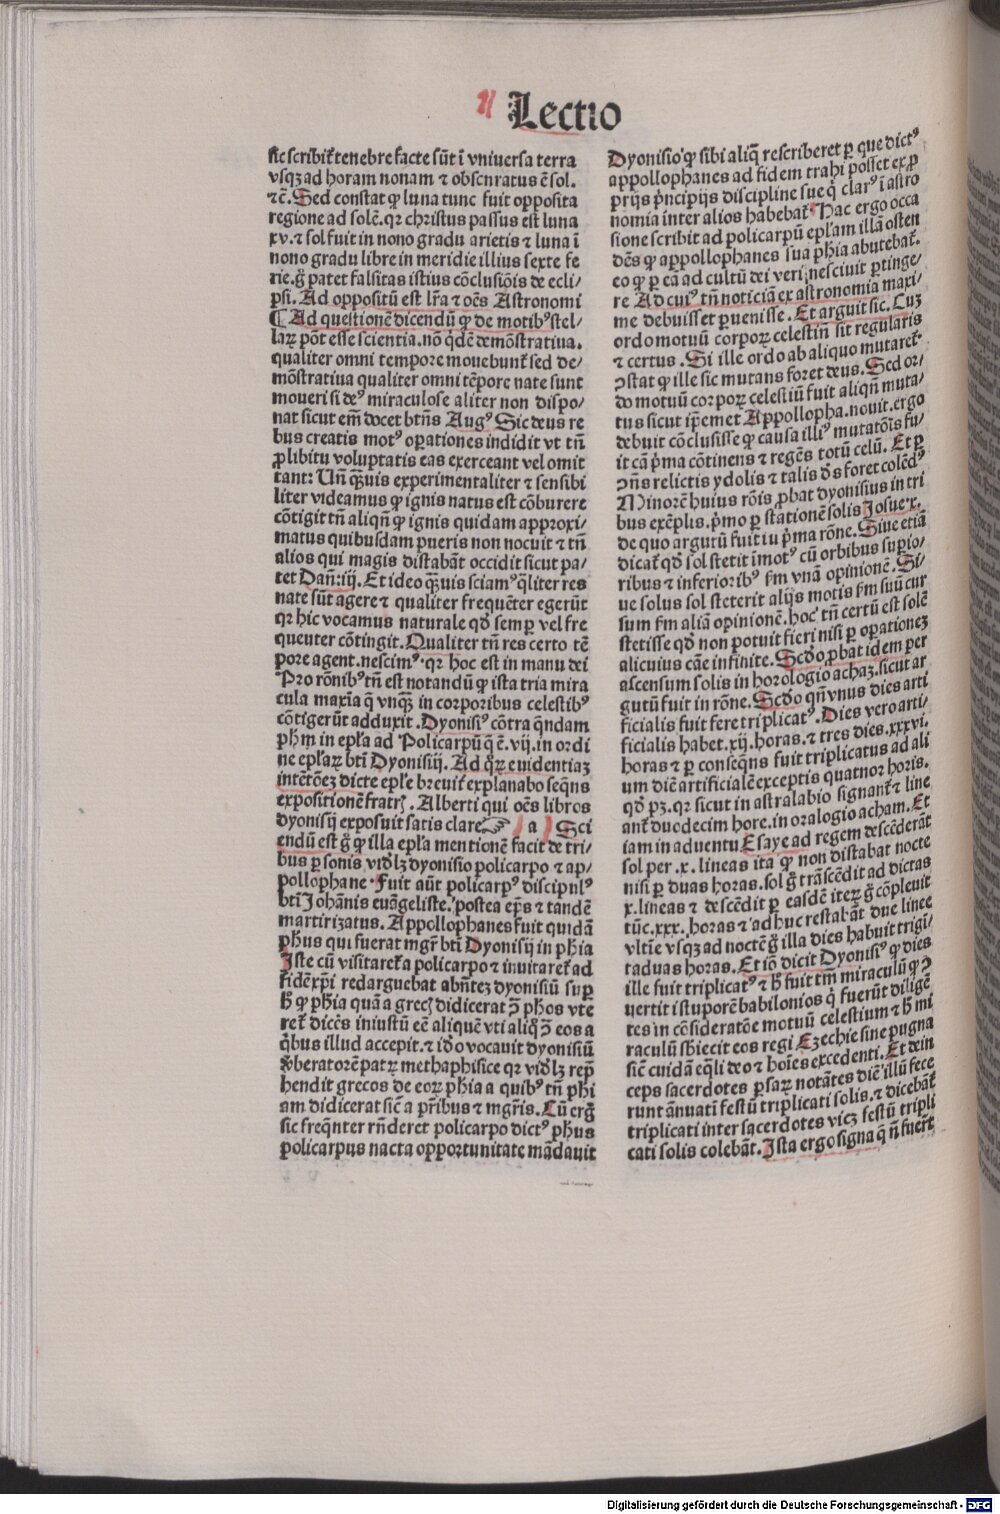 Lectio
sic scribit᷑ tenebre facte sūt ī vniuersa terra
vsqꝫ ad horam nonam ⁊ obscuratus ē sol.
⁊cē. Sed constat ꝙ luna tunc fuit opposita
regione ad solē. qꝛ christus passus est luna
xv. ⁊ sol fuit in nono gradu arietis ⁊ luna ī
nono gradu libre in meridie illius sexte fe
rie. g̊ patet falsitas istius cōclusiōis de ecli/
psi. Ad oppositū est lr̄a ⁊ oēs Astronomi
¶ Ad questionē dicendū ꝙ de motibꝰ stel/
laꝝ pōt esse scientia. nō q̇dē demōstratiua.
qualiter omni tempore mouebunt᷑ sed de/
mōstratiua qualiter omni tēpore nate sunt
moueri si deꝰ miraculose aliter non dispo/
nat sicut em̄ docet btn̄s Augꝰ Sic deus re
bus creatis motꝰ oꝑationes indidit vt tn̄
ꝓ libitu voluptatis eas exerceant vel omit
tant: Un̄ qꝫuis experimentaliter ⁊ sensibi
liter videamus ꝙ ignis natus est cōburere
cōtigit tn̄ aliqn̄ ꝙ ignis quidam approxi/
matus quibusdam pueris non nocuit ⁊ tn̄
alios qui magis distabāt occidit sicut pa/
tet Dan̄: iij. Et ideo qꝫuis sciamꝰ q̄liter res
nate sūt agere ⁊ qualiter frequēter egerūt
qꝛ hic vocamus naturale qd̄ semꝑ vel fre
quenter cōtingit. Qualiter tn̄ res certo tē
pore agent. nescimꝰ. qꝛ hoc est in manu dei
Pro rōnibꝰ tn̄ est notandū ꝙ ista tria mira
cula maxīa q̄ vnqꝫ in corporibus celestibꝰ
cōtigerūt adduxit. Dyonisiꝰ cōtra q̄ndam
ph̄m in epl̄a ad Policarpū q̄ ē. vij. in ordi
ne epl̄aꝝ btī Dyonisiij. Ad qꝝ euidentiaꝫ
intētōeꝫ dicte epl̄e breuit᷑ explanabo seq̄ns
expositionē fratrꝭ. Alberti qui oēs libros
dyonisij exposuit satis clare ☞ a Sci
endū est g̊ ꝙ illa epl̄a mentionē facit de tri/
bus ꝑsonis vidlꝫ dyonisio policarpo ⁊ ap/
pollophane. Fuit aūt policarpꝰ discipulꝰ
btī Johānis euāgeliste. postea ep̄s ⁊ tandē
martirizatus. Appollophanes fuit quidā
ph̄us qui fuerat mgr̄ btī Dyonisij in ph̄ia
Iste cū visitaret᷑ a policarpo ⁊ inuitaret᷑ ad
fidē xp̄i redarguebat abn̄teꝫ dyonisiū suꝑ
h̄ ꝙ ph̄ia quā a grecꝭ didicerat ꝯ̄ ph̄os vte
ret᷑ dicēs iniustū eē aliquē vti aliq̊ ꝯ̄ eos a
q̇bus illud accepit. ⁊ id̄o vocauit dyonisiū
v̄beratorē patꝝ methaphisice qꝛ vidlꝫ rep̄
hendit grecos de eoꝝ ph̄ia a quibꝰ tn̄ phi
am didicerat sic̄ a pr̄ibus ⁊ mgr̄is. Cū erg̊
sic freq̄nter rn̄deret policarpo dictꝰ ph̄us
policarpus nacta opportunitate mādauit
Dyonisio ꝙ sibi aliq̄ rescriberet ꝑ que dictꝰ
appollophanes ad fidem trahi posset ex ꝓ
prijs pͥncipijs discipline sue q̄ clarꝰ ī astro
nomia inter alios habebat᷑. Hac ergo occa
sione scribit ad policarpū epl̄am illā osten
dēs ꝙ appollophanes sua ph̄ia abutebat᷑.
eo ꝙ ꝑ eā ad cultū dei veri nesciuit ꝑtinge/
re Ad cuiꝰ tn̄ noticiā ex astronomia maxi/
me debuisset ꝑuenisse. Et arguit sic. Cuꝫ
ordo motuū corpoꝝ celestiū sit regularis
⁊ certus. Si ille ordo ab aliquo mutaret᷑
ꝯstat ꝙ ille sic mutans foret deus. Sed or/
do motuū corpoꝝ celestiū fuit aliqn̄ muta/
tus sicut ip̄emet Appollopha. nouit. ergo
debuit cōclusisse ꝙ causa illiꝰ mutatōis fu/
it cā pͥma cōtinens ⁊ regēs totū celū. Et ꝑ
ꝯn̄s relictis ydolis ⁊ talis dꝰs foret colēdꝰ
Minorē huius rōis ꝓbat dyonisius in tri
bus exēplis. pͥmo ꝑ stationē solis Josue. x.
de quo argutū fuit in pͥma rōne. Siue etiā
dicat᷑ qd̄ sol stetit īmotꝰ cū orbibus suꝑio/
ribus ⁊ inferioribꝰ ſm vnā opinionē. Si/
ue solus sol steterit alijs motis ſm suū cur
sum ſm aliā opinionē. hoc tn̄ certū est solē
stetisse qd̄ non potuit fieri nisi ꝑ oꝑationeꝫ
alicuius cāe infinite. Scd̄o ꝓbat idem per
ascensum solis in horologio achaꝫ. sicut ar
gutū fuit in rōne. Scd̄o qn̄ vnus dies arti
ficialis fuit fere triplicatꝰ. Dies vero arti/
ficialis habet. xij. horas. ⁊ tres dies. xxxvi.
horas ⁊ ꝑ conseq̄ns fuit triplicatus ad ali
um diē artificialē exceptis quatuor horis.
qd̄ pꝫ. qꝛ sicut in astralabio signant᷑ ⁊ line
ant᷑ duodecim hore. in oralogio acham. Et
iam in aduentu Esaye ad regem descēderāt
sol per. x. lineas ita ꝙ non distabat nocte
nisi ꝑ duas horas. sol g̊ trāscēdit ad dictas
x. lineas ⁊ descēdit ꝑ easdē iteꝝ g̊ cōpleuit
tūc. xxx. horas ⁊ adhuc restabāt due linee
vltīe vsqꝫ ad noctē g̊ illa dies habuit trigi/
ta duas horas. Et iō dicit Dyonisiꝰ ꝙ dies
ille fuit triplicatꝰ ⁊ h̄ fuit tm̄ miraculū ꝙ ꝯ
uertit ī stuporē babilonios q̇ fuerūt diligē
tes in cōsideratōe motuū celestium ⁊ h̄ mi
raculū sb̄iecit eos regi Ezechie sine pugna
sic̄ cuidā eq̄li deo ⁊ hoīes excedenti. Et dein
ceps sacerdotes ꝑsaꝝ notātes diē illū fece
runt ānuatī festū triplicati solis. ⁊ dicebāt᷑
triplicati inter sacerdotes viceꝫ festū tripli
cati solis colebāt. Ista ergo signa q̄ n̄ fuer̄t
Digitalisierung gefördert durch die Deutsche Forschungsgemeinschaft - DFG